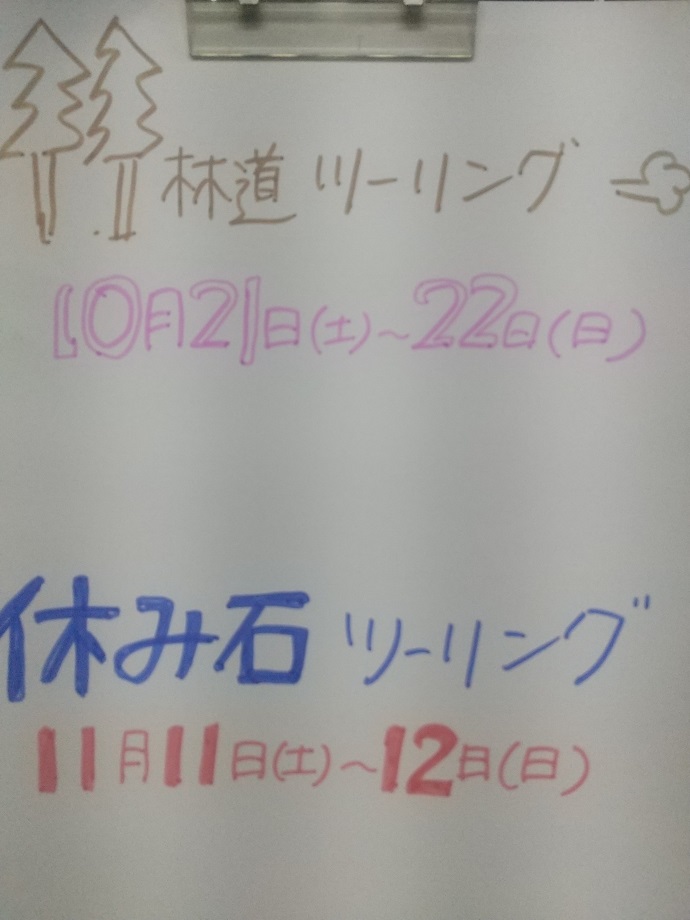 林道ツーリング
10月21日(土)~22日(日)
休み石ツーリング
11月11日(土)~12日(日)